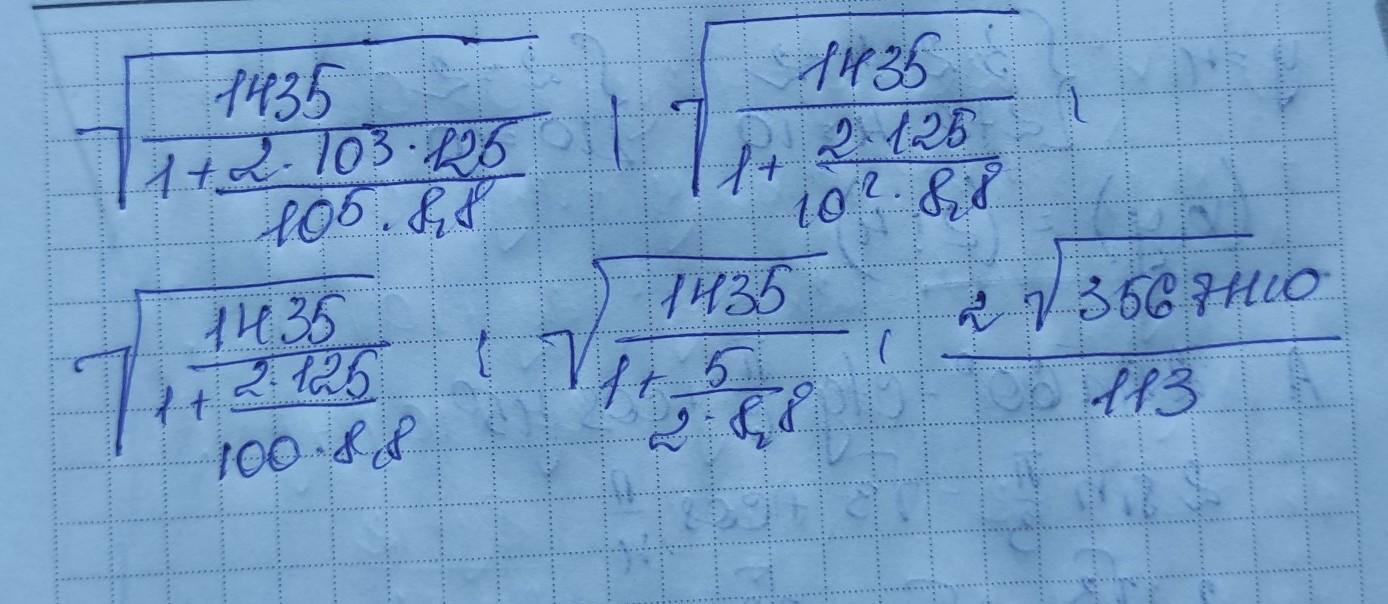 √(1435 / (1 + (2·10³·125) / (10⁵·8,8))) , √(1435 / (1 + (2·125) / (10²·8,8))) ,
√(1435 / (1 + (2·125) / (100·8,8))) , √(1435 / (1 + 5 / (2·8,8))) , (2√3567410) / 113